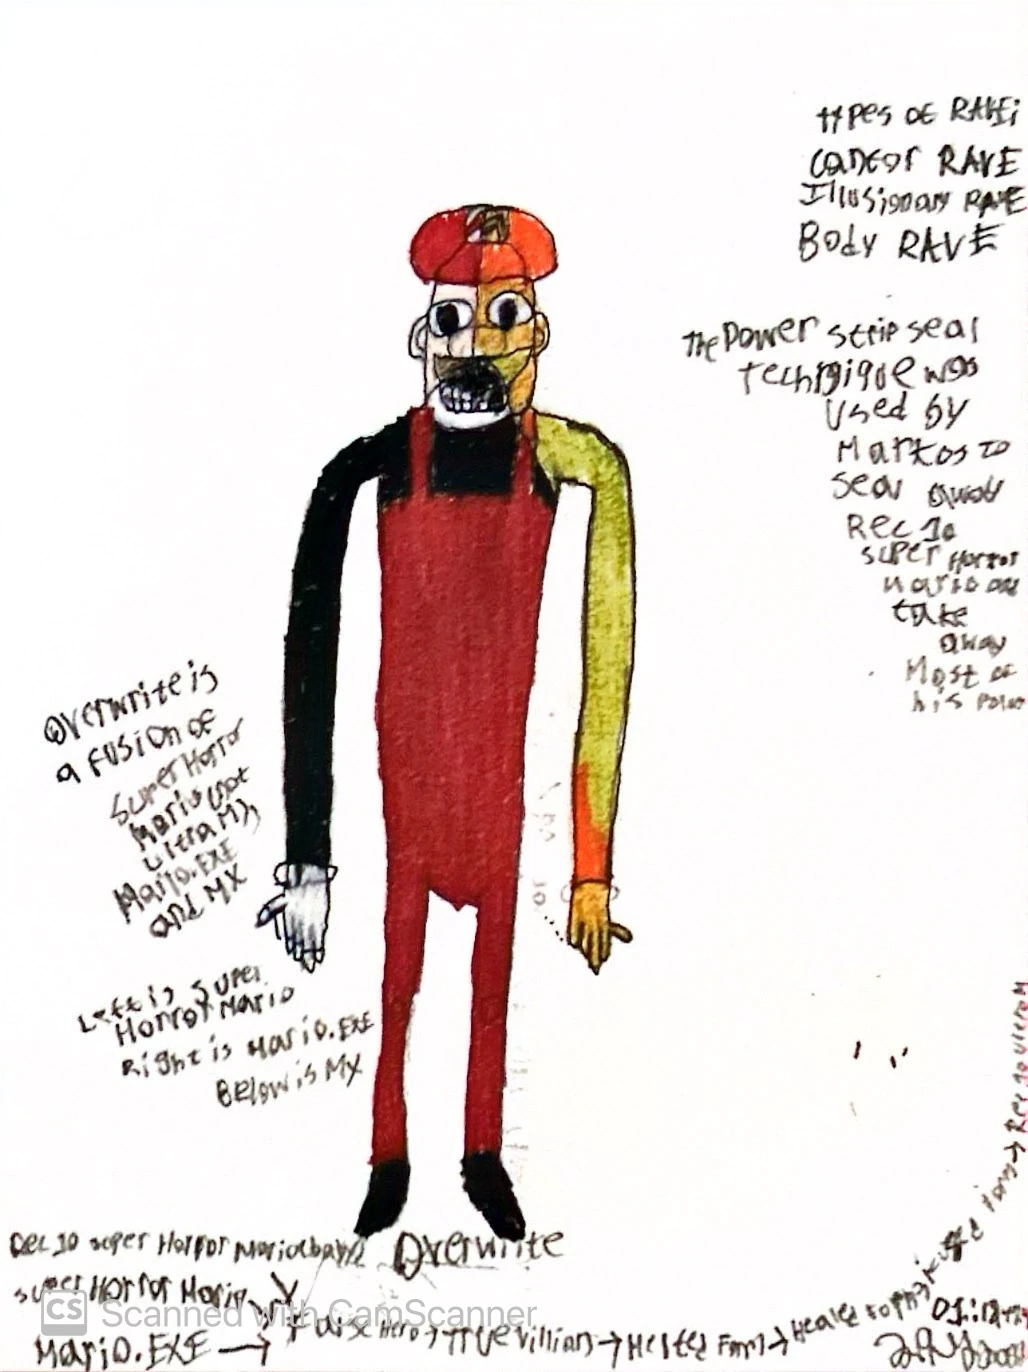 types of RAVE:
Cantor RAVE
Illusionary RAVE
Body RAVE
The Power strip seal
technique was
Used by
Markos to
seal away
Rec 10
super Horror
Mario and
take
away
Most of
his Power
Overwrite is
a fusion of
Super Horror
Mario (not
Ultra M),
Mario.EXE
and MX
Left is Super
Horror Mario
Right is Mario.EXE
Below is MX
Overwrite
Dec 10 super Horror Mario
super Horror Mario
Mario.EXE → Hero → True Villian → Form → Healed form →
CS Scanned with CamScanner